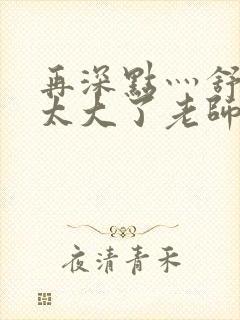 再深點灬舒
太大了老師
夜清青禾